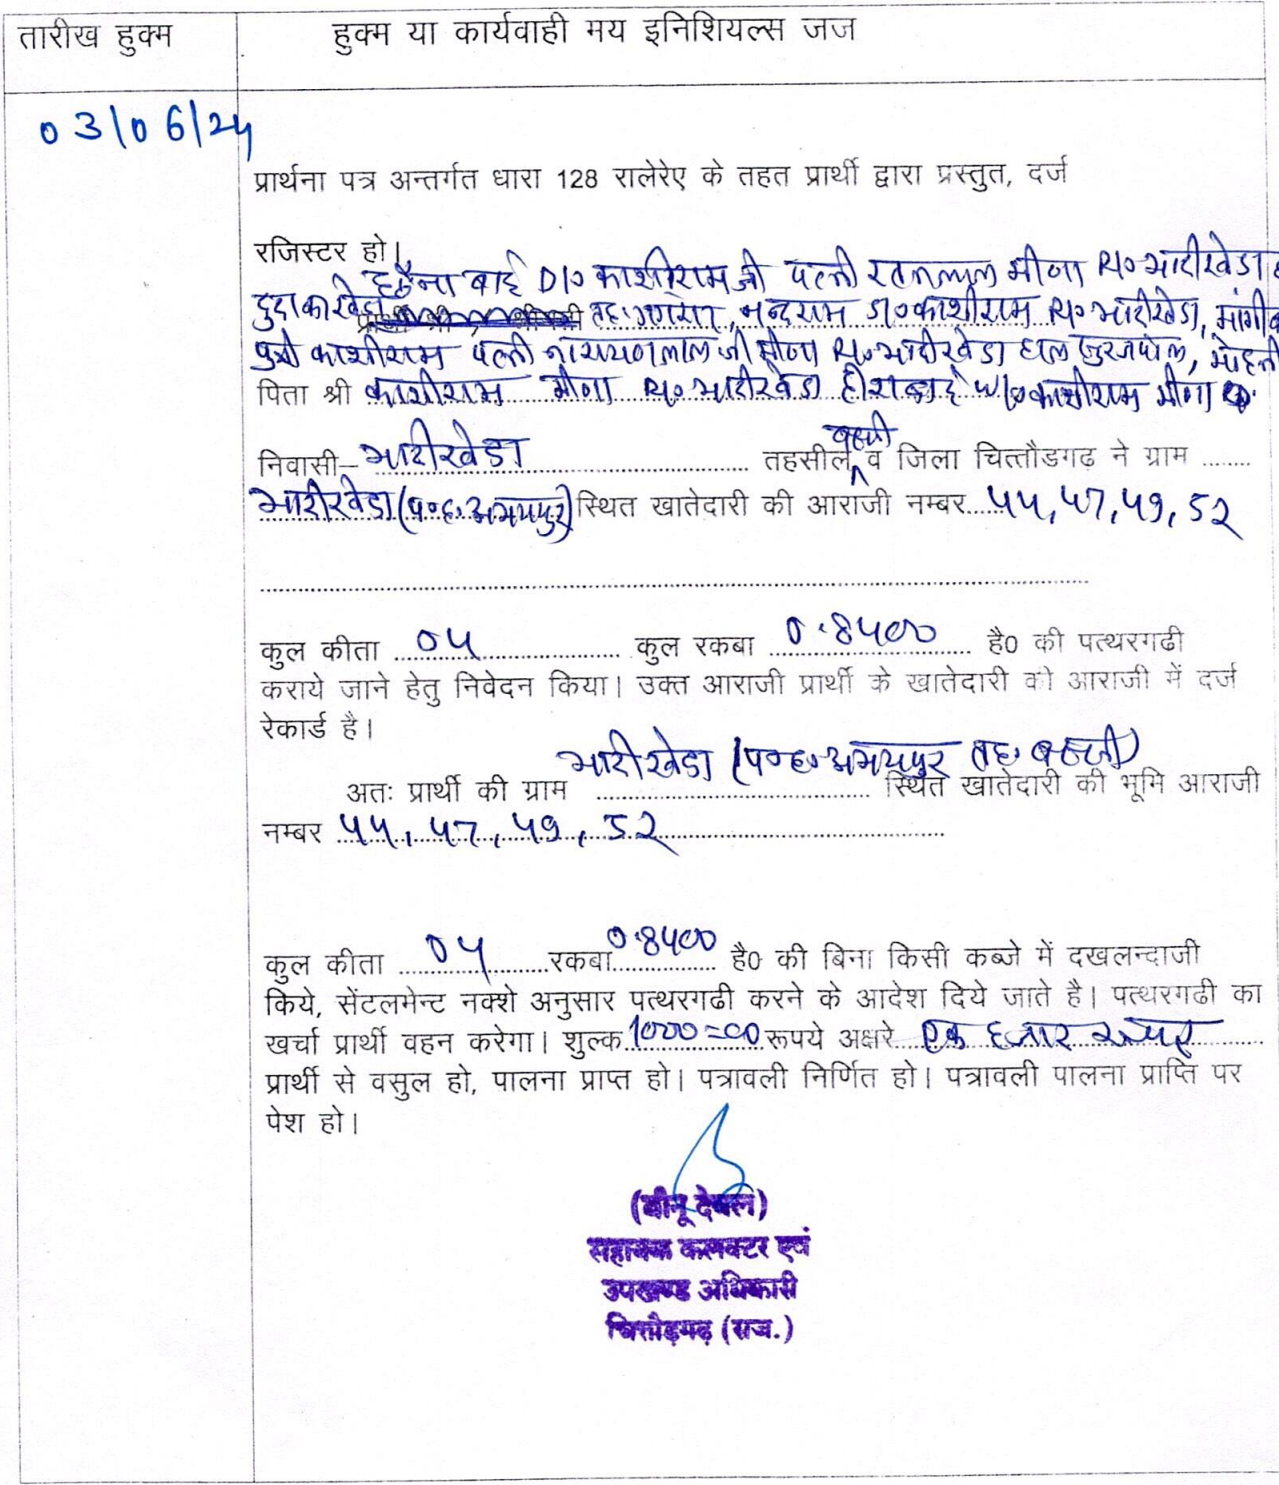 तारीख हुक्म
हुक्म या कार्यवाही मय इनिशियल्स जज
03/06/24
प्रार्थना पत्र अन्तर्गत धारा 128 रालेरेए के तहत प्रार्थी द्वारा प्रस्तुत, दर्ज
रजिस्टर हो।
बाई D/o काशीराम जी पत्नी रतनलाल मीणा R/o भारीखेडा
तह. नन्दराम S/o काशीराम R/o भारीखेडा,
पुत्री काशीराम पत्नी नारायणलाल जी मीणा R/o भारीखेडा हाल सुरजपोल, मोहनी
पिता श्री काशीराम मीणा R/o भारीखेडा हीराबाई W/o काशीराम मीणा
निवासी– भारीखेडा तहसील बस्सी व जिला चित्तौडगढ़ ने ग्राम
भारीखेडा (प०ह० अभयपुर) स्थित खातेदारी की आराजी नम्बर 44, 47, 49, 52
कुल कीता 04 कुल रकबा 0.8400 है0 की पत्थरगढी
कराये जाने हेतु निवेदन किया। उक्त आराजी प्रार्थी के खातेदारी की आराजी में दर्ज
रेकार्ड है।
भारीखेडा (प०ह० अभयपुर तह. बस्सी)
अतः प्रार्थी की ग्राम स्थित खातेदारी की भूमि आराजी
नम्बर 44, 47, 49, 52
कुल कीता 04 रकबा 0.8400 है0 की बिना किसी कब्जे में दखलन्दाजी
किये, सेंटलमेन्ट नक्शे अनुसार पत्थरगढी करने के आदेश दिये जाते है। पत्थरगढी का
खर्चा प्रार्थी वहन करेगा। शुल्क 1000=00 रूपये अक्षरे एक हजार रूपए
प्रार्थी से वसुल हो, पालना प्राप्त हो। पत्रावली निर्णित हो। पत्रावली पालना प्राप्ति पर
पेश हो।
(बीनू देवल)
सहायक कलक्टर एवं
उपखण्ड अधिकारी
चित्तौड़गढ़ (राज.)